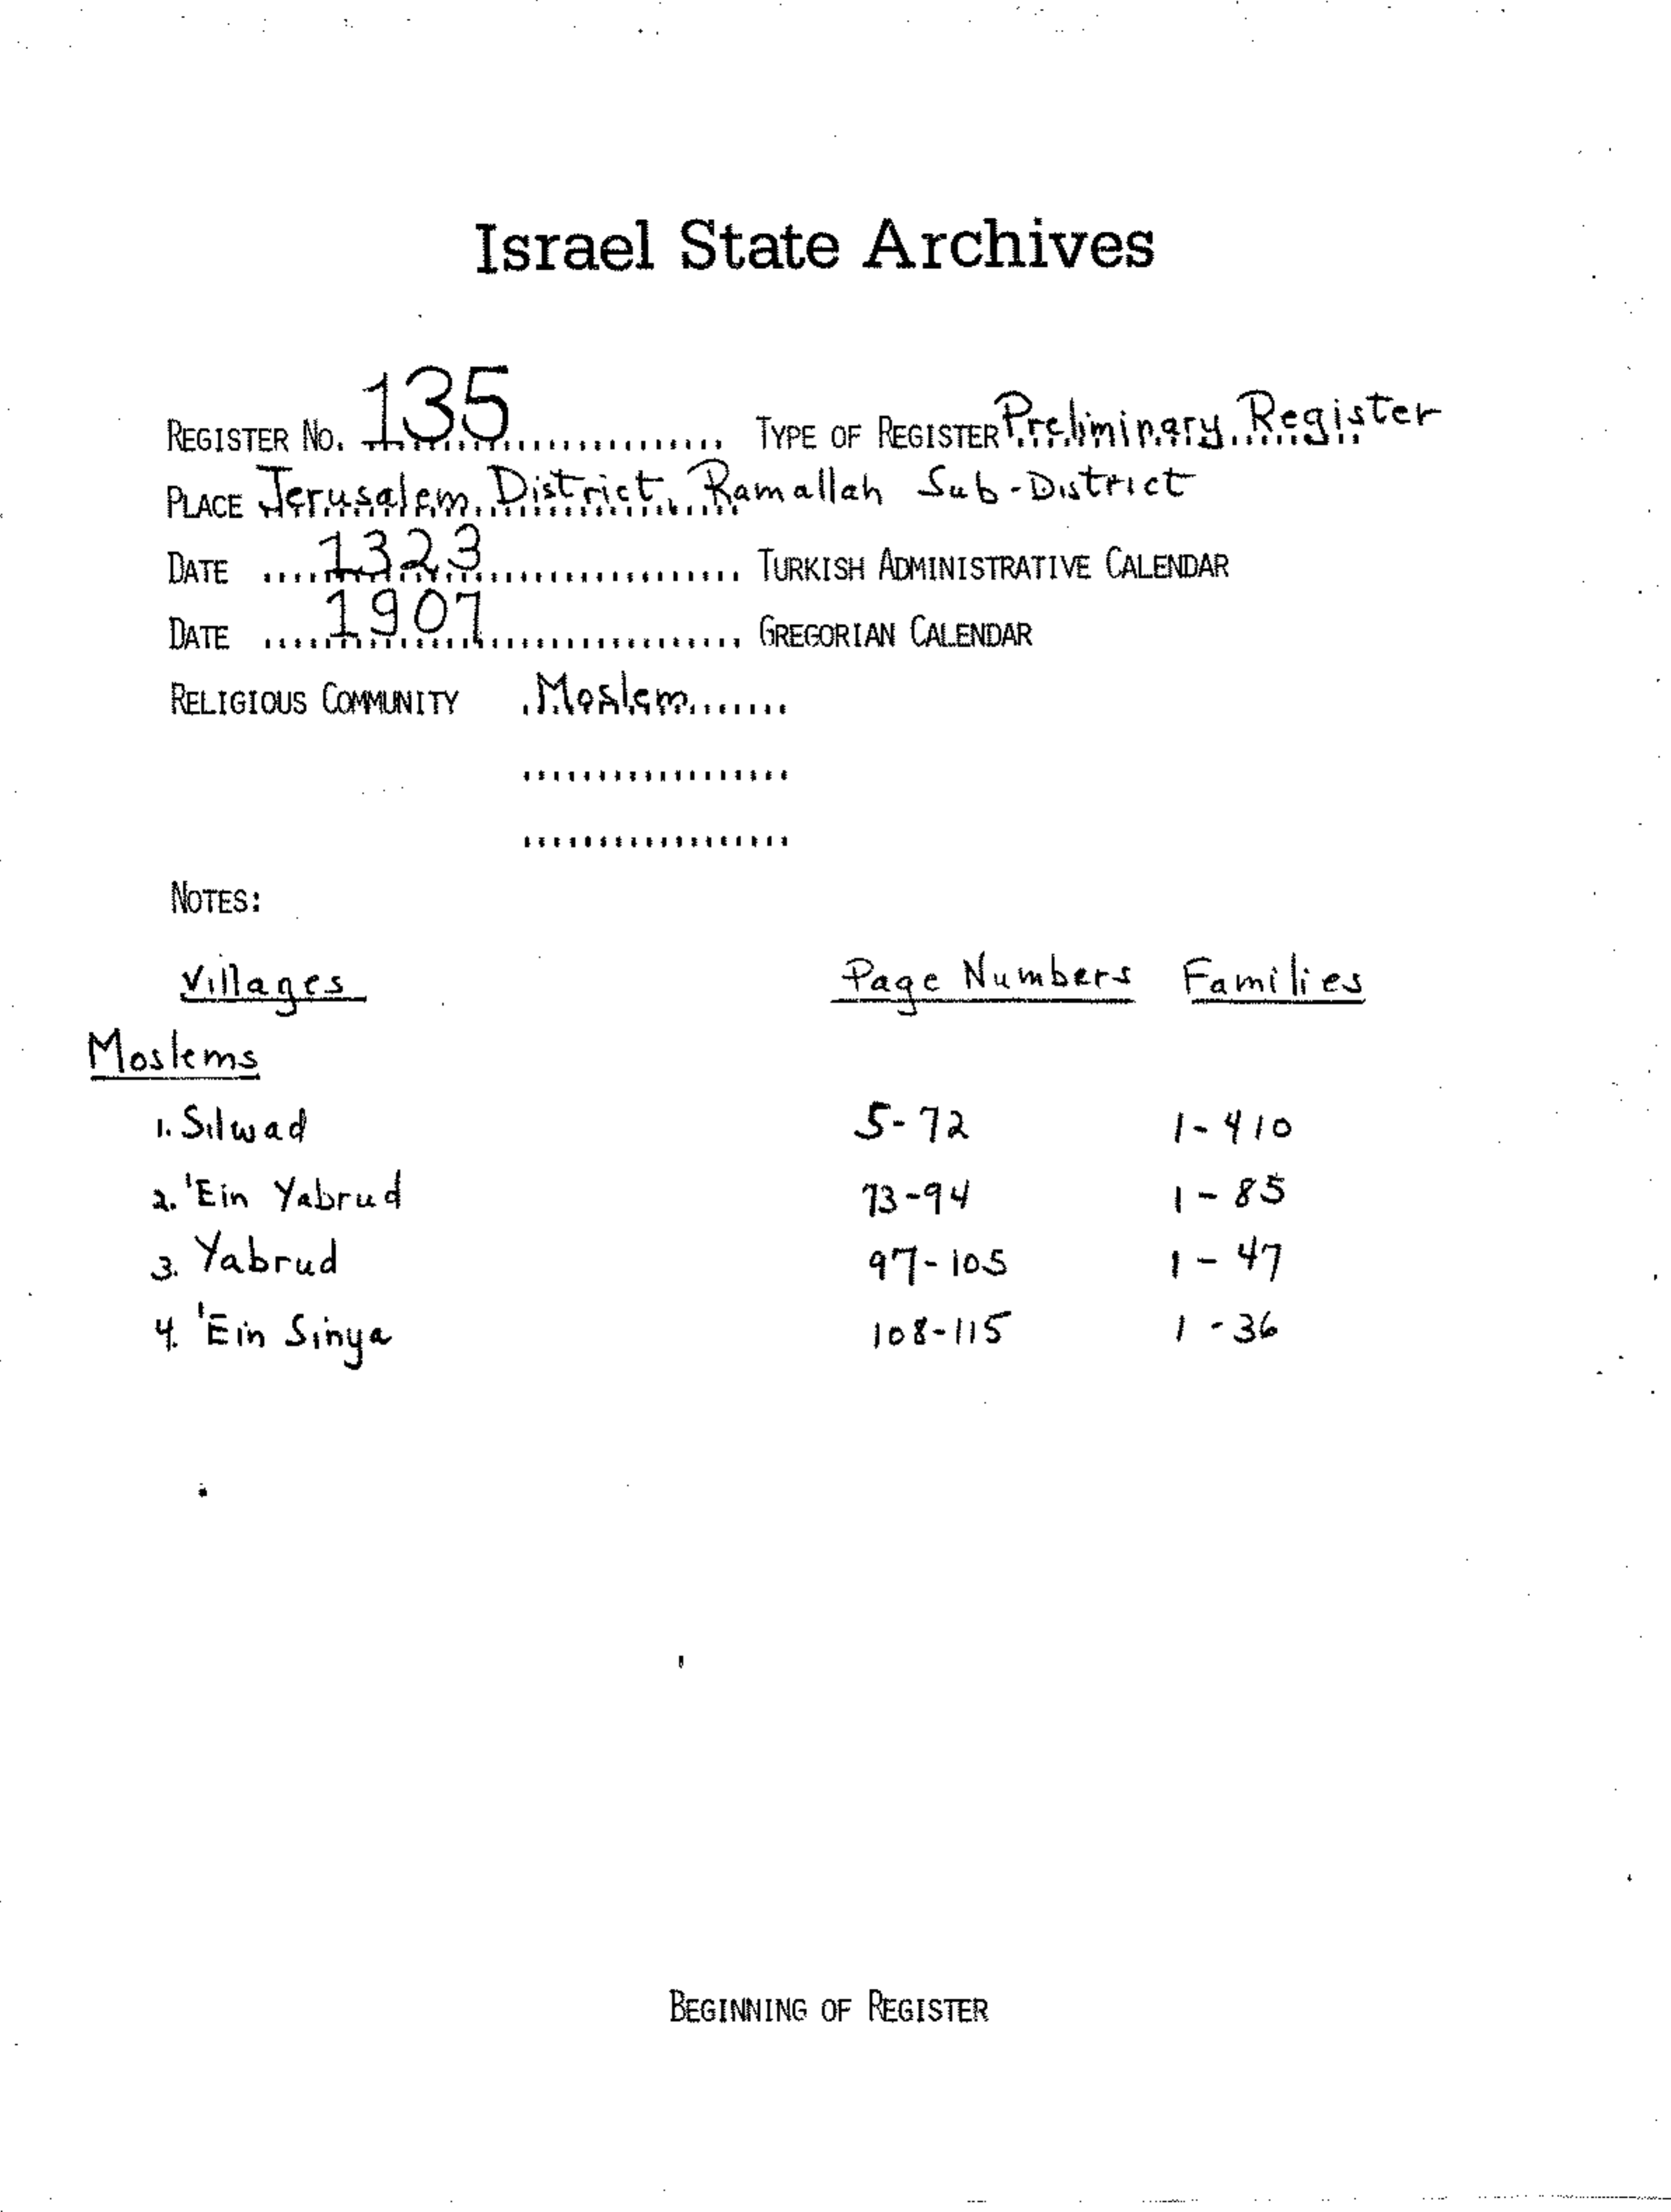 Israel State Archives
REGISTER NO. 135 TYPE OF REGISTER Preliminary Register
PLACE Jerusalem District, Ramallah Sub-District
DATE 1323 TURKISH ADMINISTRATIVE CALENDAR
DATE 1907 GREGORIAN CALENDAR
RELIGIOUS COMMUNITY Moslem
NOTES:
Villages Page Numbers Families
Moslems
1. Silwad 5-72 1-410
2. 'Ein Yabrud 73-94 1-85
3. Yabrud 97-105 1-47
4. 'Ein Sinya 108-115 1-36
BEGINNING OF REGISTER